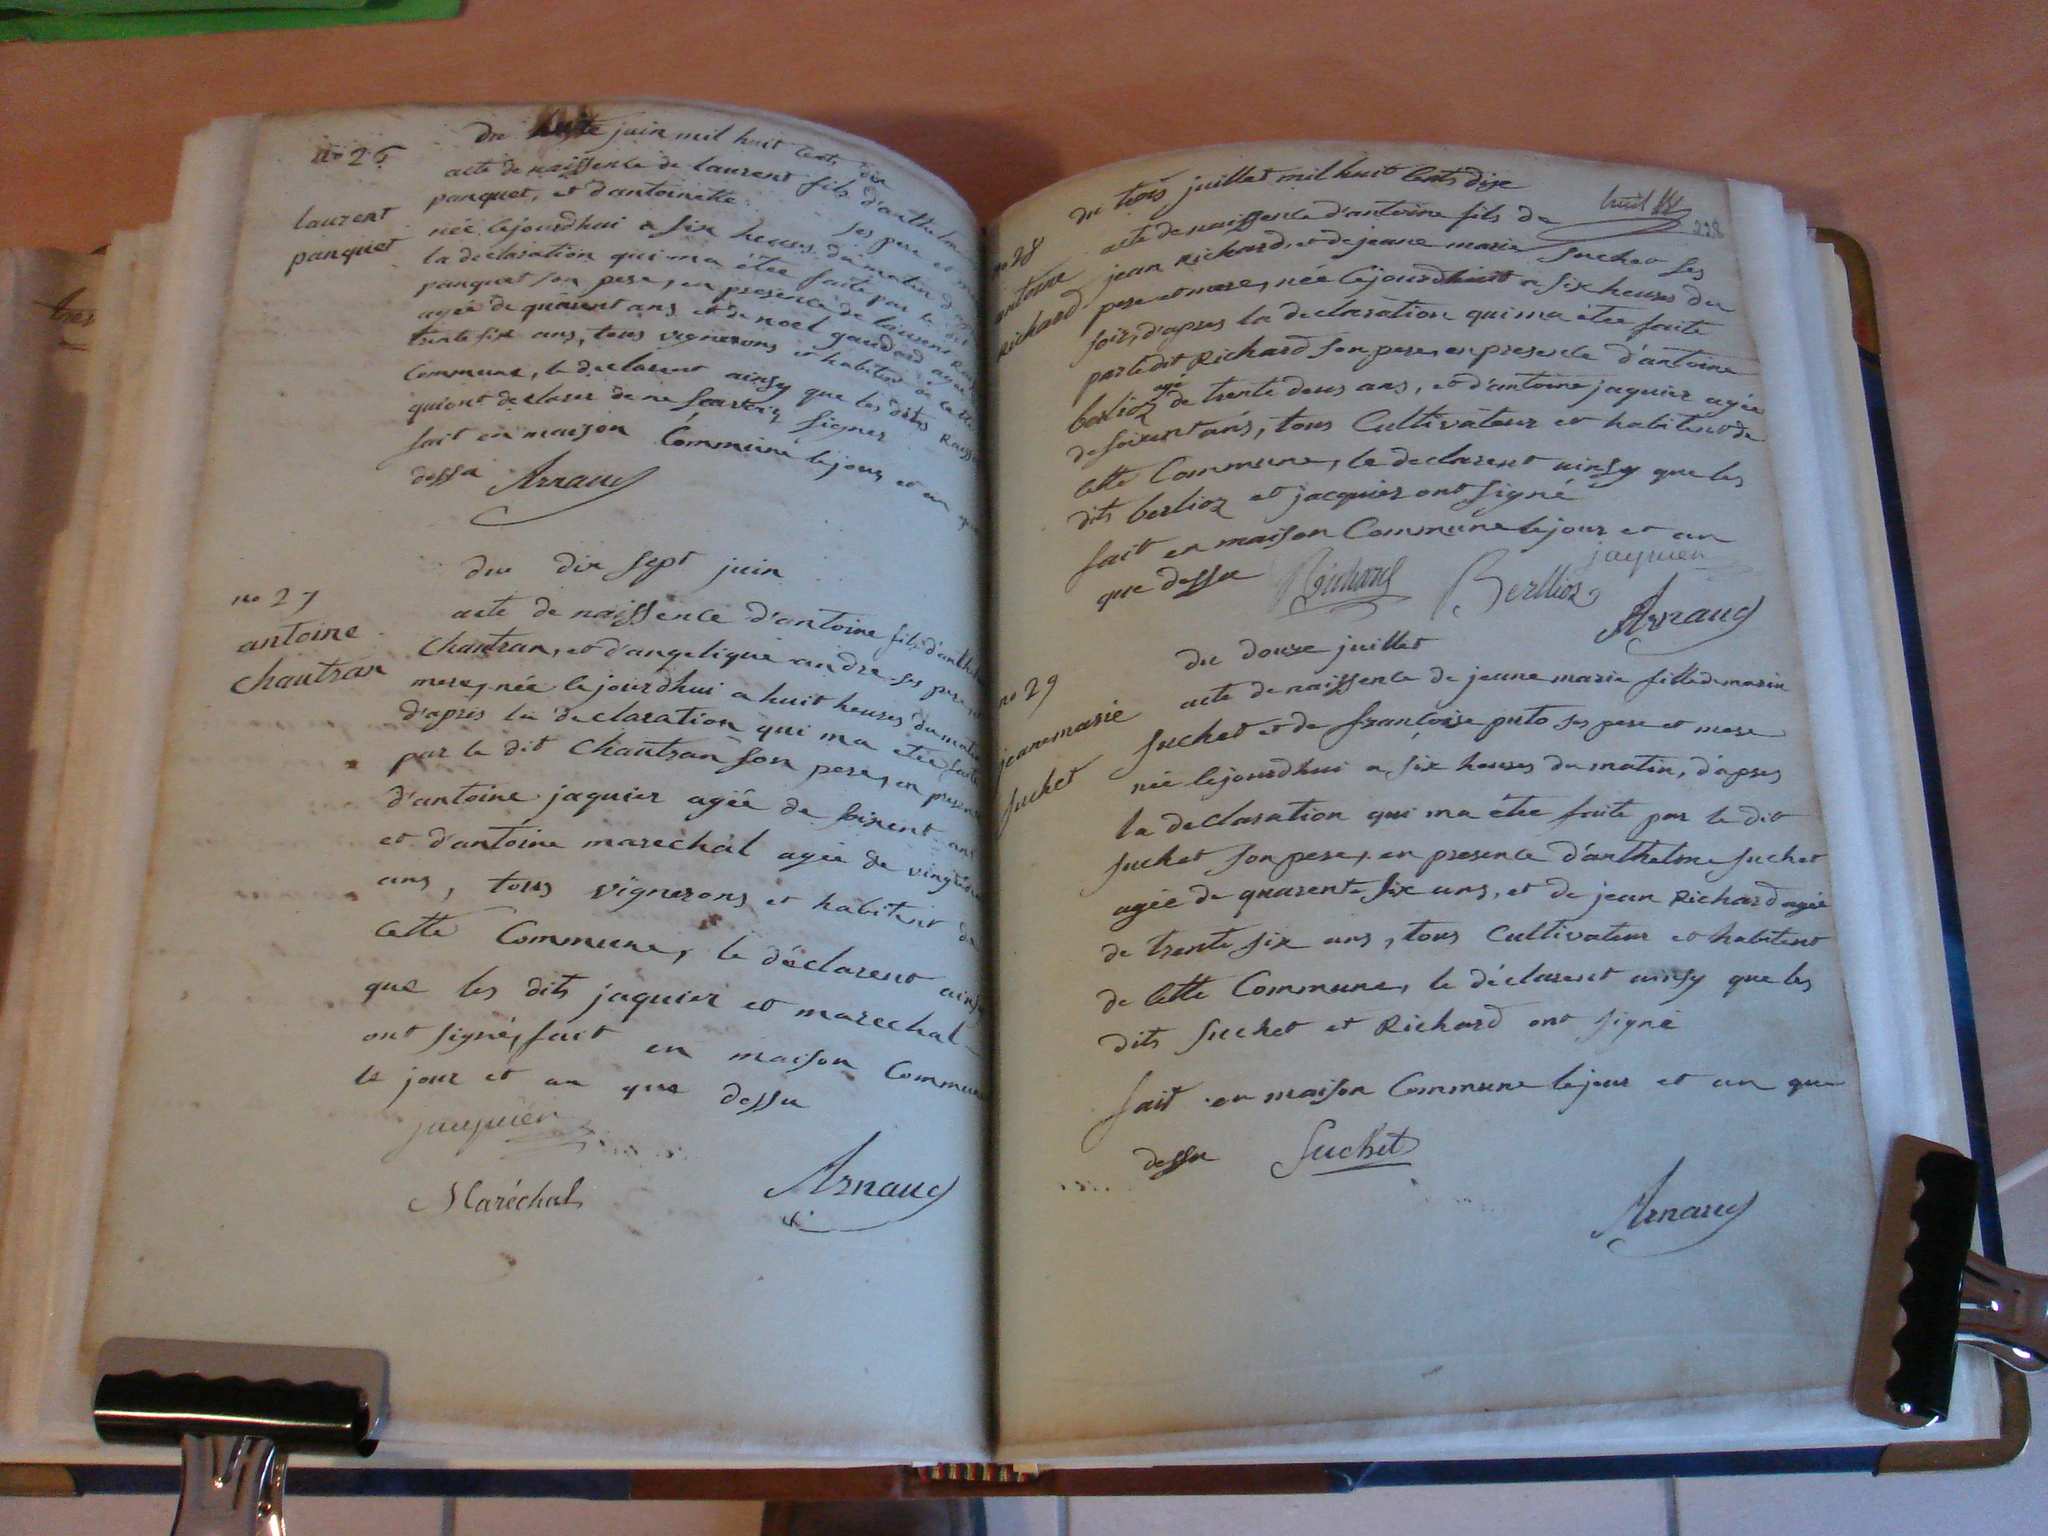 no 26
laurent
panquet
du juin mil huit cents dix
acte de naissence de laurent fils d'anthelme
panquet, et d'antoinette ses pere et
née lejourdhui a six heures du matin
la declaration qui ma étée faite par le dit
panquet son pere, en presence de laurent
agée de quarent ans et de noel gaudard agée
trente six ans, tous vignerons et habitent de cette
Commune, le declarent ainsy que les dits
qui ont declarer de ne scavoir signer
fait en maison Commune le jour et an que
dessu Arnaud
no 27
antoine
chantran
du dix sept juin
acte de naissence d'antoine fils d'anthelme
Chantran, et d'angelique andre ses pere et
mere, née lejourdhui a huit heures du matin
d'apres la declaration qui ma étée faite
par le dit Chantran son pere, en presence
d'antoine jaquier agée de soixent ans
et d'antoine marechal agée de vingt
ans, tous vignerons et habitent de
cette Commune, le déclarent ainsy
que les dits jaquier et marechal
ont signé, fait en maison Commune
le jour et an que dessu
jaquier
Maréchal Arnaud
huit
228
no 28
antoine
Richard
du trois juillet mil huit cents dix
acte de naissence d'antoine fils de
jean Richard, et de jeane marie Suchet ses
pere et mere, née lejourdhuit a six heures du
soir, d'apres la declaration qui ma étée faite
par le dit Richard son pere, en presence d'antoine
berlioz agé de trente deus ans, et d'antoine jaquier agée
de soixent ans, tous Cultivateur et habitent de
cette Commune, le declarent ainsy que les
dits berlioz et jacquier ont signé
fait en maison Commune lejour et an
que dessu Richard Berlioz jaquier
Arnaud
no 29
jeanemarie
suchet
du douze juillet
acte de naissence de jeane marie fille de marin
Suchet et de francoise puto ses pere et mere
née lejourdhui a six heures du matin, d'apres
la declaration qui ma étée faite par le dit
Suchet son pere, en presence d'anthelme suchet
agée de quarente six ans, et de jean Richard agée
de trente six ans, tous Cultivateur et habitent
de Cette Commune, le déclarent ainsy que les
dits Suchet et Richard ont signé
fait en maison Commune lejour et an que
dessu Suchet
Arnaud